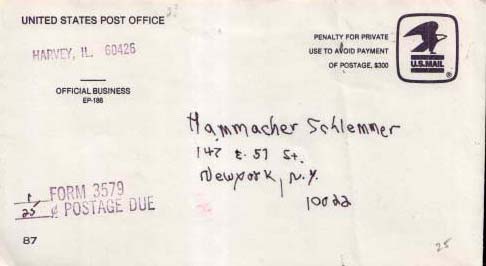 UNITED STATES POST OFFICE
HARVEY, IL. 60426
OFFICIAL BUSINESS
EP-186
PENALTY FOR PRIVATE
USE TO AVOID PAYMENT
OF POSTAGE, $300
U.S.MAIL
®
Hammacher Schlemmer
147 E. 57 St.
Newyork, N.Y.
10022
1 FORM 3579
25 ¢ POSTAGE DUE
87
25